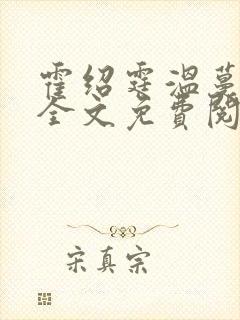 霍绍霆温蔓
全文免費閱
宋真宗